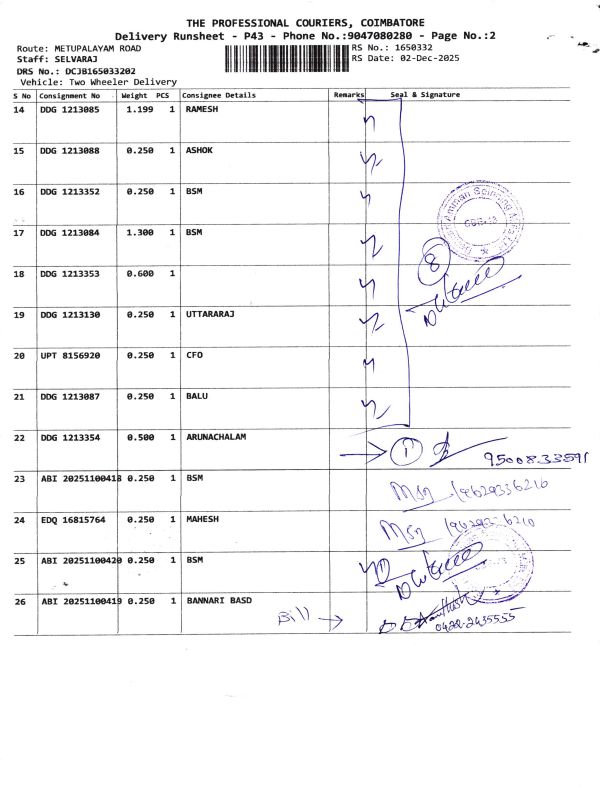 THE PROFESSIONAL COURIERS, COIMBATORE
Delivery Runsheet - P43 - Phone No.:9047080280 - Page No.:2
Route: METUPALAYAM ROAD RS No.: 1650332
Staff: SELVARAJ RS Date: 02-Dec-2025
DRS No.: DCJB165033202
Vehicle: Two Wheeler Delivery
S No Consignment No Weight PCS Consignee Details Remarks Seal & Signature
14 DDG 1213085 1.199 1 RAMESH
15 DDG 1213088 0.250 1 ASHOK
16 DDG 1213352 0.250 1 BSM
17 DDG 1213084 1.300 1 BSM
8
18 DDG 1213353 0.600 1
19 DDG 1213130 0.250 1 UTTARARAJ
20 UPT 8156920 0.250 1 CFO
21 DDG 1213087 0.250 1 BALU
22 DDG 1213354 0.500 1 ARUNACHALAM 1
9500833591
23 ABI 20251100418 0.250 1 BSM
Msg 9629336210
24 EDQ 16815764 0.250 1 MAHESH
Msg 9629336210
25 ABI 20251100420 0.250 1 BSM 1
26 ABI 20251100419 0.250 1 BANNARI BASD
Bill → 0422-2435555